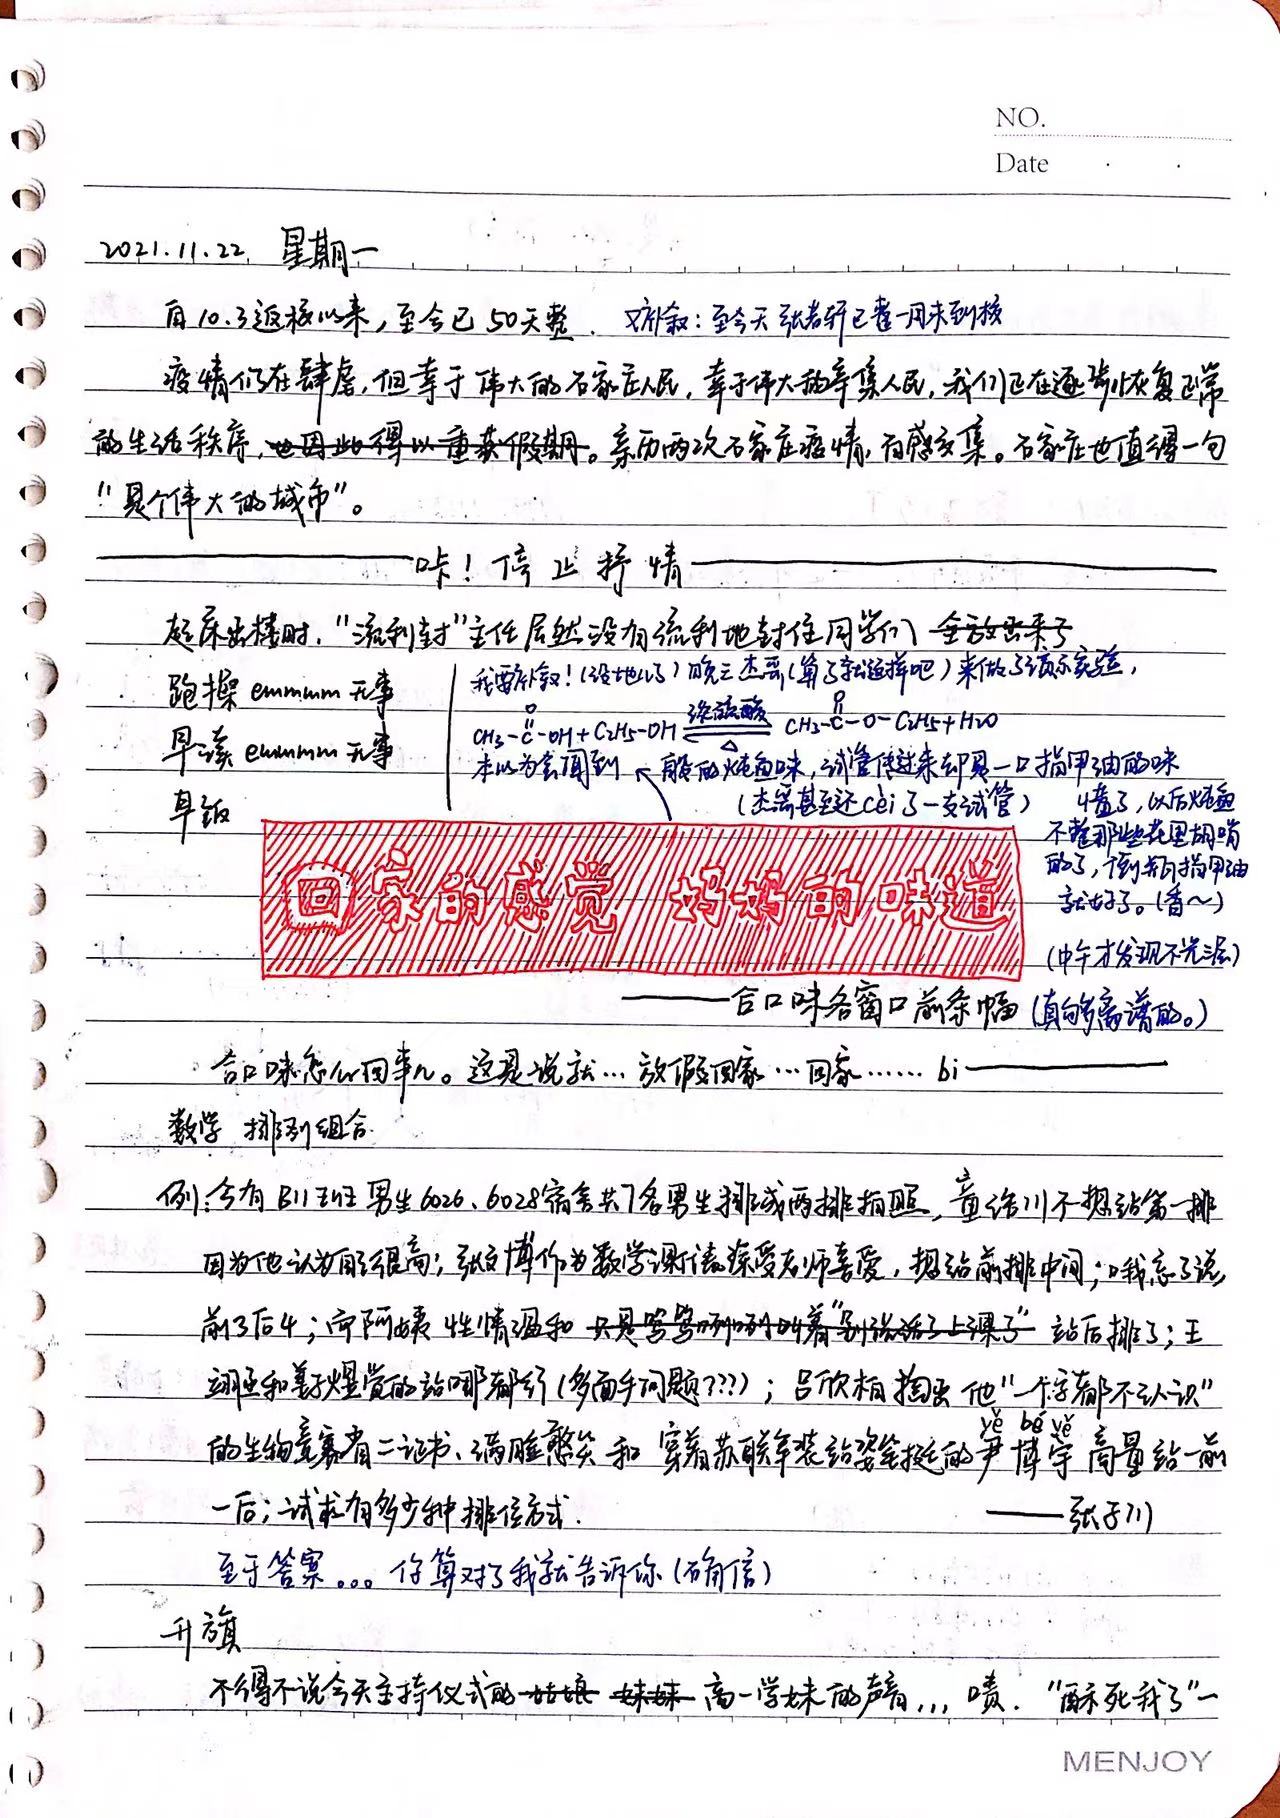 NO.
Date
2021.11.22 星期一
自10.3返校以来，至今已50天整. 文补叙：至今天张若轩已整一周未到校
疫情仍在肆虐，但幸于伟大的石家庄人民，幸于伟大的辛集人民，我们正在逐步恢复正常
的生活秩序，也因此得以重获假期。亲历两次石家庄疫情，百感交集。石家庄也值得一句
"是个伟大的城市"。
咔！停止抒情
起床出楼时，"流利封"主任居然没有流利地封住同学们 全放出来了
跑操 emmmm 无事
早读 emmmm 无事
早饭
我要补叙！(没地儿了) 晚三杰哥(算了就这样吧) 来做了演示实验，
O O
CH3-C-OH+C2H5-OH 浓硫酸 △ CH3-C-O-C2H5+H2O
本以为会闻到 般的炖鱼味，试管传过来却是一口指甲油的味
(杰哥甚至还cèi了一支试管)
懂了，以后炖鱼
不整那些花里胡哨
的了，倒瓶指甲油
就好了。(香～)
回家的感觉 妈妈的味道
(中午才发现不光三层)
——合口味各窗口前条幅 (真够离谱的。)
合口味怎么回事儿。这是说就…放假回家…回家…… bi——
数学 排列组合
例：今有B11班男生6026、6028宿舍共7名男生排成两排拍照，童 川不想站第一排
因为他认为自己很高；张文博作为数学课代表深受老师喜爱，想站前排中间；哦我忘了说，
前3后4；向阿姨 性情温和 只是 叫着"别说话了上课了" 站后排了；王
翊丞和姜 的站哪都行(多面手问题???)；吕欣桓掏出他"一个字都不认识"
的生物竞赛省二证书、满脸憨笑和穿着苏联军装站姿笔挺的尹博宇商量站一前
yě bé yě
一后；试求有多少种排位方式. ——张子川
至于答案。。。你算对了我就告诉你(确信)
升旗
不得不说今天主持仪式的姑娘 妹妹 高一学妹的声音... 啧. "酥死我了"一
MENJOY